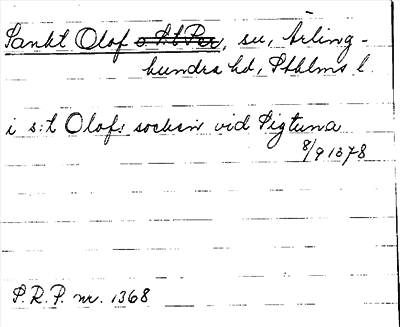 Sankt Olof o. S:t Per, su, Ärling-
hundra hd, Sthlms l.
i s:t Olofs socken vid Sigtuna
8/9 1378
P.R.P. nr. 1368